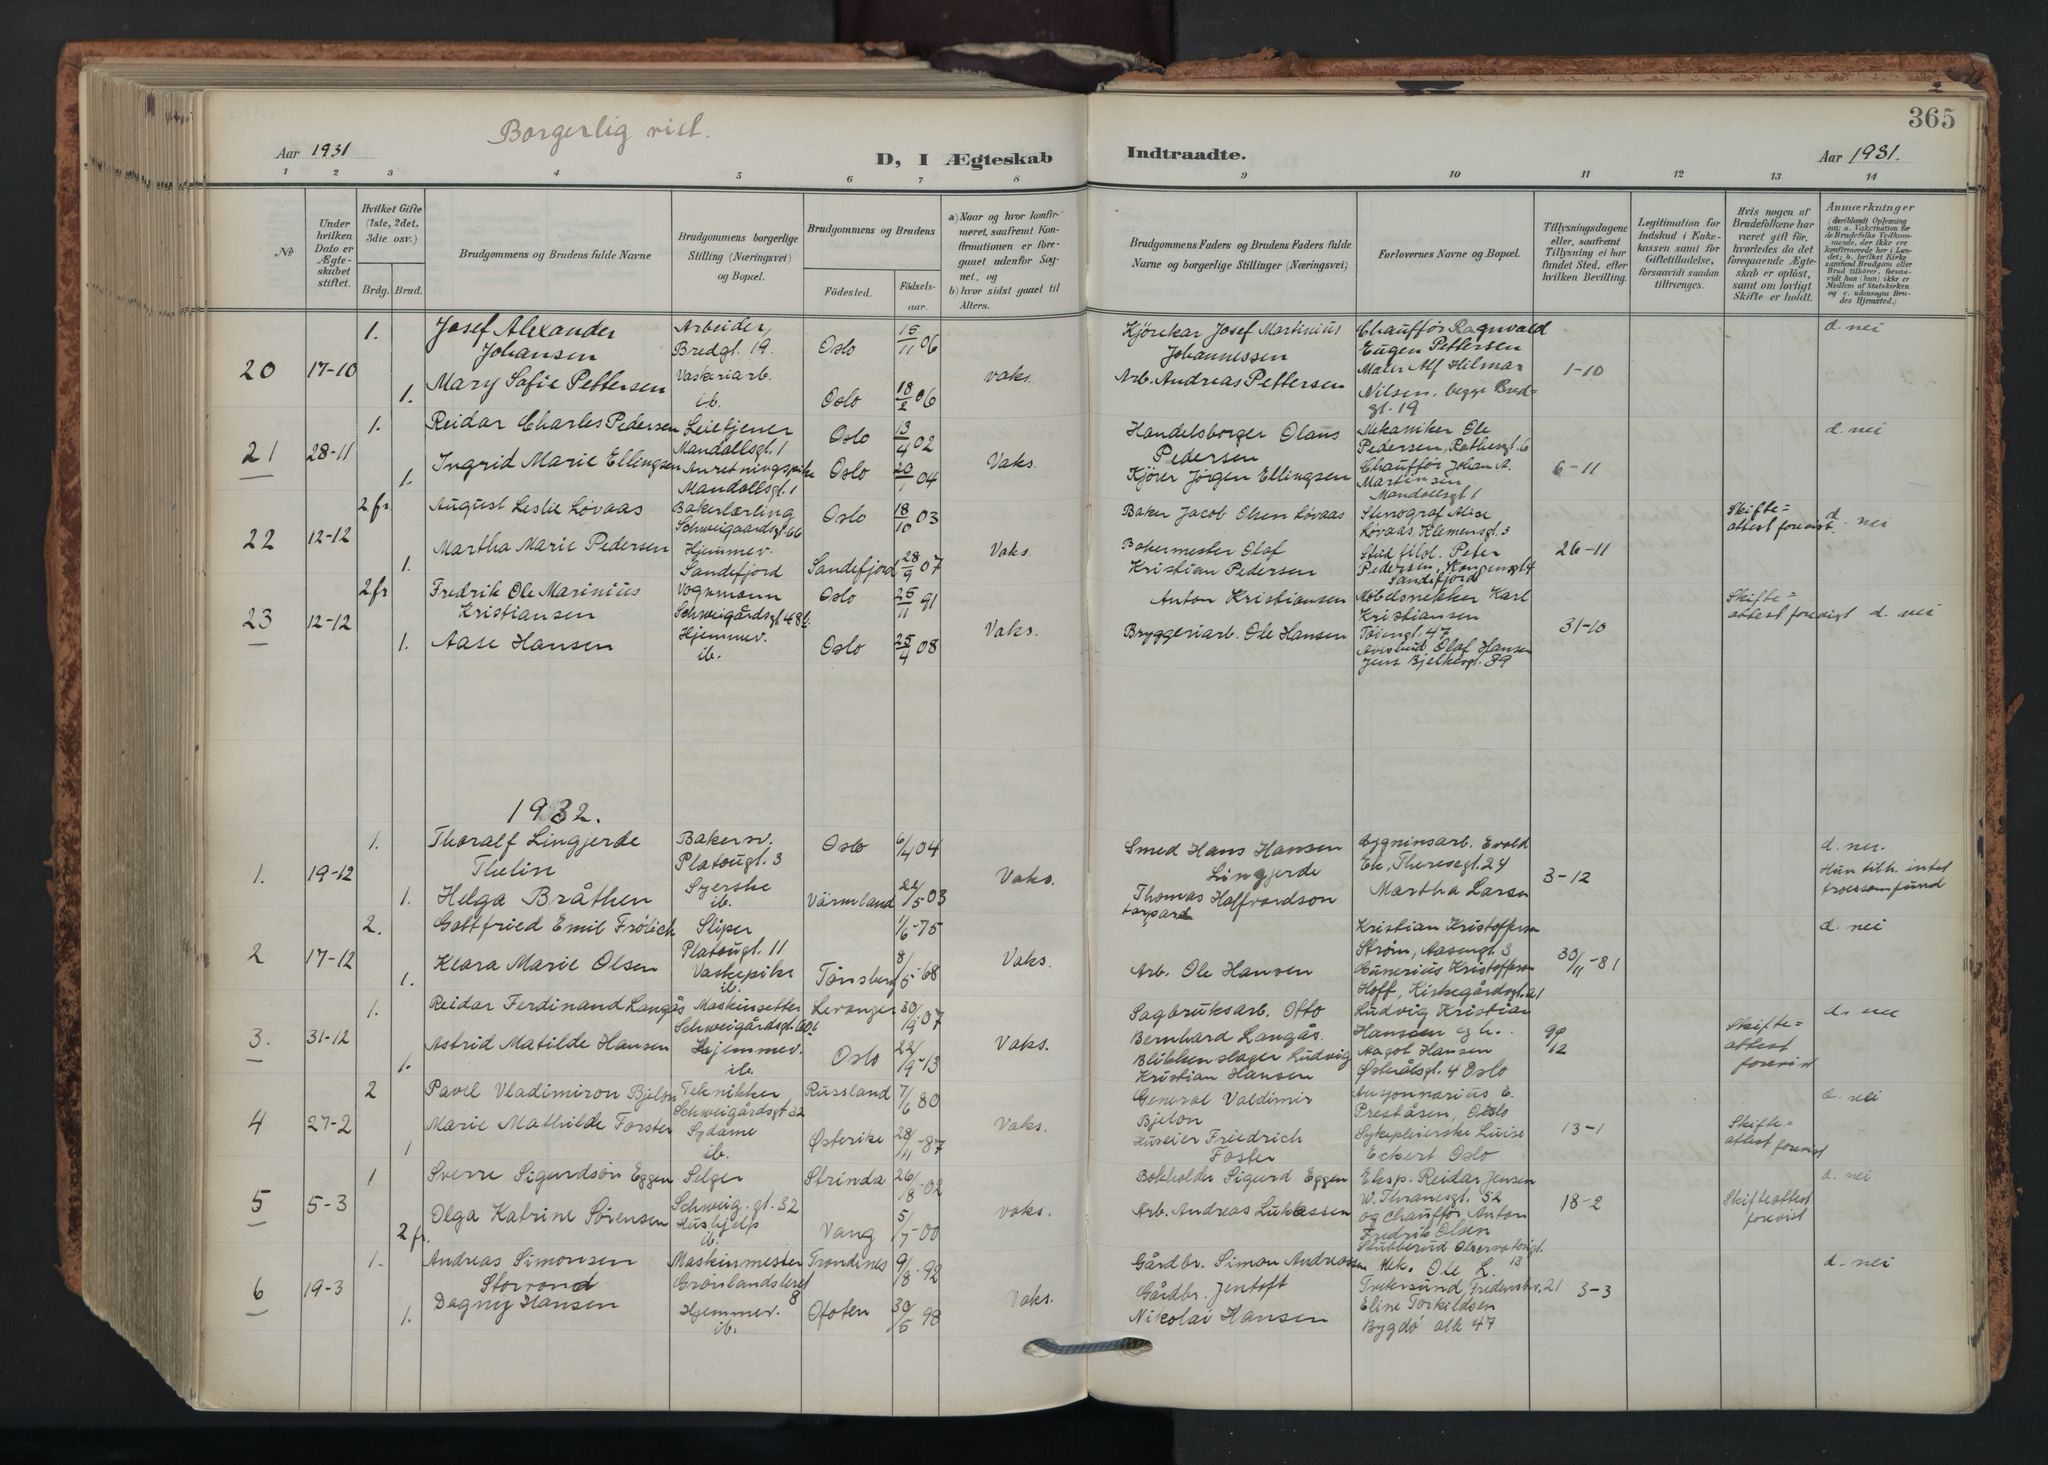 365
Borgerlig viet.
Aar 1931
D, I Ægteskab
Indtraadte.
Aar 1931.
1 2 3 4 5 6 7 8 9 10 11 12 13 14
№
Under hvilken Dato er Ægteskabet stiftet.
Hvilket Gifte (1ste, 2det, 3die osv.)
Brdg. Brud.
Brudgommens og Brudens fulde Navne
Brudgommens borgerlige Stilling (Næringsvei) og Bopæl.
Brudgommens og Brudens
Fødested.
Fødselsaar.
a) Naar og hvor konfirmeret, saafremt Konfirmationen er foregaaet udenfor Sognet, og
b) hvor sidst gaaet til Alters.
Brudgommens Faders og Brudens Faders fulde Navne og borgerlige Stillinger (Næringsvei)
Forlovernes Navne og Bopæl.
Tillysningsdagene eller, saafremt Tillysning ei har fundet Sted, efter hvilken Bevilling.
Legitimation for Indskud i Enkekassen samt for Giftetilladelse, forsaavidt saadan tiltrænges.
Hvis nogen af Brudefolkene har været gift før, hvorledes da det foregaaende Ægteskab er opløst, samt om lovligt Skifte er holdt.
Anmærkninger
20 17-10
1. Josef Alexander Johansen
Arbeider, Bredgt. 19.
Oslo 15/11 06
Kjørekar Josef Martinius Johannessen
Chauffør Ragnvald Eugen Pettersen
d. nei
1. Mary Sofie Pettersen
Vaskeriarb. ib.
Oslo 18/2 06
vaks.
Arb. Andreas Pettersen
Maler Alf Hilmar Nilsen, begge Bredgt. 19
1-10
21 28-11
1. Reidar Charles Pedersen
Leietjener Mandallsgt. 1
Oslo 13/4 02
Handelsborger Olaus Pedersen
Mekaniker Ole Pedersen, Rathesgt. 6
d. nei
1. Ingrid Marie Ellingsen
Anretningspike Mandallsgt. 1
Oslo 20/1 04
Vaks.
Kjører Jørgen Ellingsen
Chauffør Johan A. Martinsen Mandallsgt 1
6-11
22 12-12
2 fr. August Leslie Løvaas
Bakerlærling Schweigaardsgt. 66
Oslo 18/10 03
Baker Jacob Olsen Løvaas
Stenograf Alice Løvaas Klemensgt. 3
Skifte=attest forevist.
d. nei
1. Martha Marie Pedersen
Hjemmev. Sandefjord
Sandefjord 28/9 07
Vaks
Bakermester Olaf Kristian Pedersen
Stud. filol. Peter Pedersen, Kongensgt 4 Sandefjord
26-11
23 12-12
2 fr Fredrik Ole Marinius Kristiansen
Vognmann Schweigårdsgt 48 b.
Oslo 25/11 91
Anton Kristiansen
Møbelsnekker Karl Kristiansen Tøiengt. 47
Skifte=attest forevist
d. nei
1. Aase Hansen
Hjemmev. ib.
Oslo 25/4 08
Vaks.
Bryggeriarb. Ole Hansen
Avisbud Olaf Hansen Jens Bjelkesgt. 39
31-10
1932.
1. 19-12
1. Thoralf Lingjerde Thelin
Bakersv. Platougt. 3
Oslo 6/4 04
Smed Hans Hansen Lingjerde
Bygninsarb. Evald Ek, Theresegt. 24
d. nei.
1. Helga Bråthen
Syerske ib.
Värmland 22/5 03
Vaks.
Thomas Haffvardson
Martha Larsen
3-12
Hun tilh. intet troessamfund
2 17-12
2. Gottfried Emil Frölich
Sliper Platougt. 11
1/6-75
Kristian Kristoffersen Strøm, Aasengt. 3
d. nei
1. Klara Marie Olsen
Vaskepike ib.
Tønsberg 8/5-68
Vaks.
Arb. Ole Hansen
Gunerius Kristoffersen Hoff, Kirkegårdsgt. 21
30/11-31
3. 31-12
1. Reidar Ferdinand Langås
Maskinsetter Schweigårdsgt. 60b
Levanger 30/9-07
Sagbruksarb. Otto Bernhard Langås.
Ludvig Kristian Hansen og h.
d. nei
1. Astrid Matilde Hansen
Hjemmev. ib.
Oslo 22/9-13
Vaks.
Blikkenslager Ludvig Kristian Hansen
Aagot Hansen Østerålsgt. 4 Oslo
Skifte=attest forevist
4 27-2
2 Pavel Vladimiron Bjelon
Teknikker Schweigårdsgt 32
Russland 7/6 80
General Valdimir Bjelon
Ausjonnarius E. Preståsen, Oslo
d. nei
1 Marie Mathilde Forster
Sydame ib.
Østerike 28/11-87
Vaks.
Huseier Friedrich Foster
Sykepleierske Luise Eckert Oslo
13-1
Skifte=attest forevist
5 5-3
1 Sverre Sigurdsøn Eggen
Selger Schweig. gt. 32
Strinda 26/8-02
Bokholder Sigurd Eggen
Eksp. Reidar Jensen W. Thranesgt. 52
d. nei
2 fr. Olga Katrine Sørensen
Hushjelp ib.
Vang 5/7-00
vaks.
Arb. Andreas Lukassen
og Chauffør Anton Fredrik Olsen Stubberud Observatorigt. 13
18-2
Skifteattest forevist
6 19-3
1. Andreas Simonsen Storrond
Maskinmester Grønlandsleret 8
Trondenes 9/8-92
Gårdbr. Simon Andreassen
Mek. Ole L. Tretersund, Fredensbv. 21
d. nei
1. Dagny Hansen
Hjemmev. ib.
Ofoten 30/5 98
Vaks.
Gårdbr. Jentoft Nikolai Hansen
Eline Torkildsen Bygdø alle 47
3-3